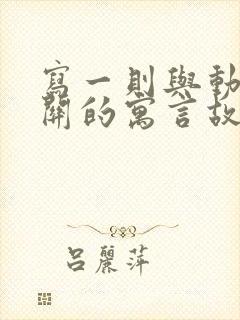 寫一則與動
關的寓言故
呂麗萍